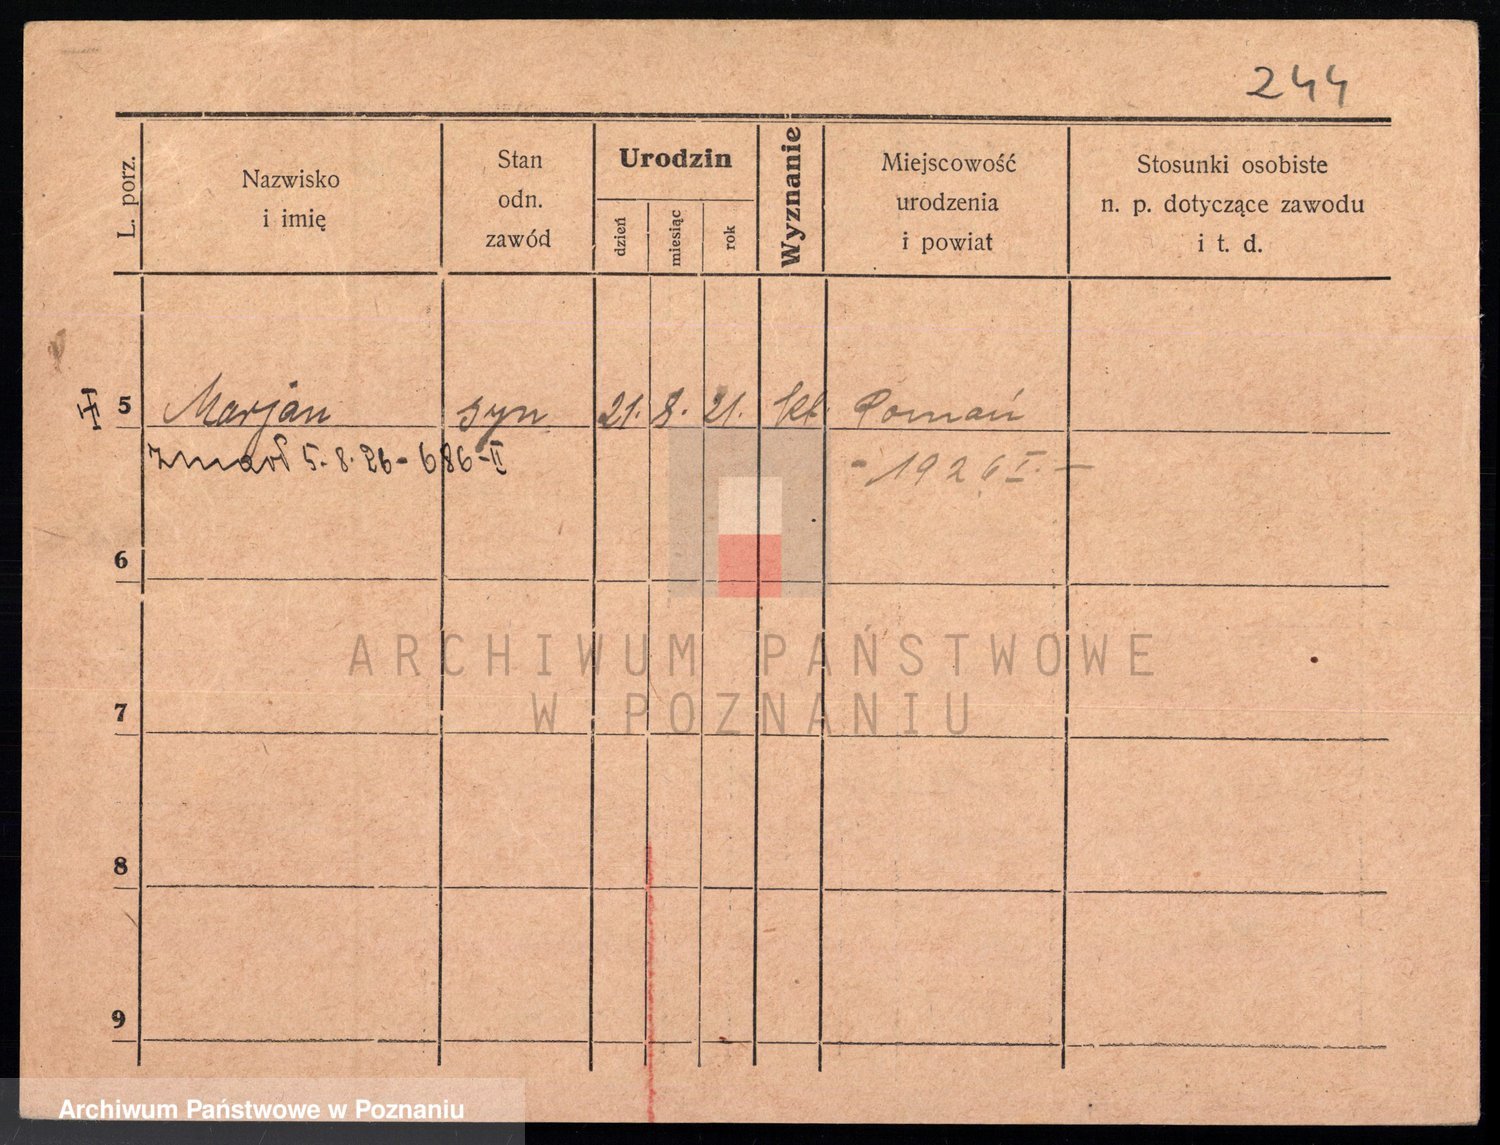 244
L. porz.
Nazwisko
i imię
Stan
odn.
zawód
Urodzin
dzień
miesiąc
rok
Wyznanie
Miejscowość
urodzenia
i powiat
Stosunki osobiste
n. p. dotyczące zawodu
i t. d.
5 Marjan syn 21. 8. 21. kt. Poznań
zmarł 5. 8. 26 - 686 - II
- 1926 I. -
6
7
8
9
ARCHIWUM PAŃSTWOWE
W POZNANIU
Archiwum Państwowe w Poznaniu